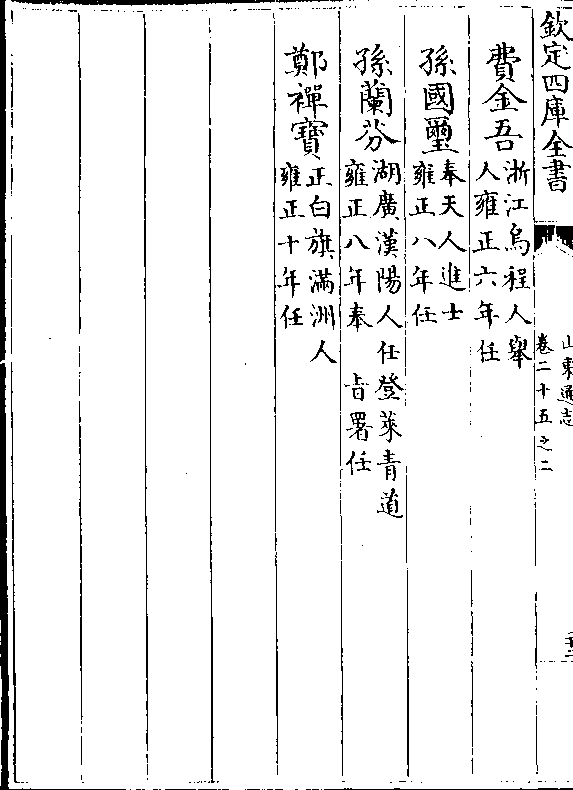 欽定四庫全書
山東通志
卷二十五之二
費金吾浙江烏程人舉
人雍正六年任
孫國璽奉天人進士
雍正八年任
孫蘭芬湖廣漢陽人任登萊青道
雍正八年奉 㫖署任
鄭禪寶正白旗滿洲人
雍正十年任